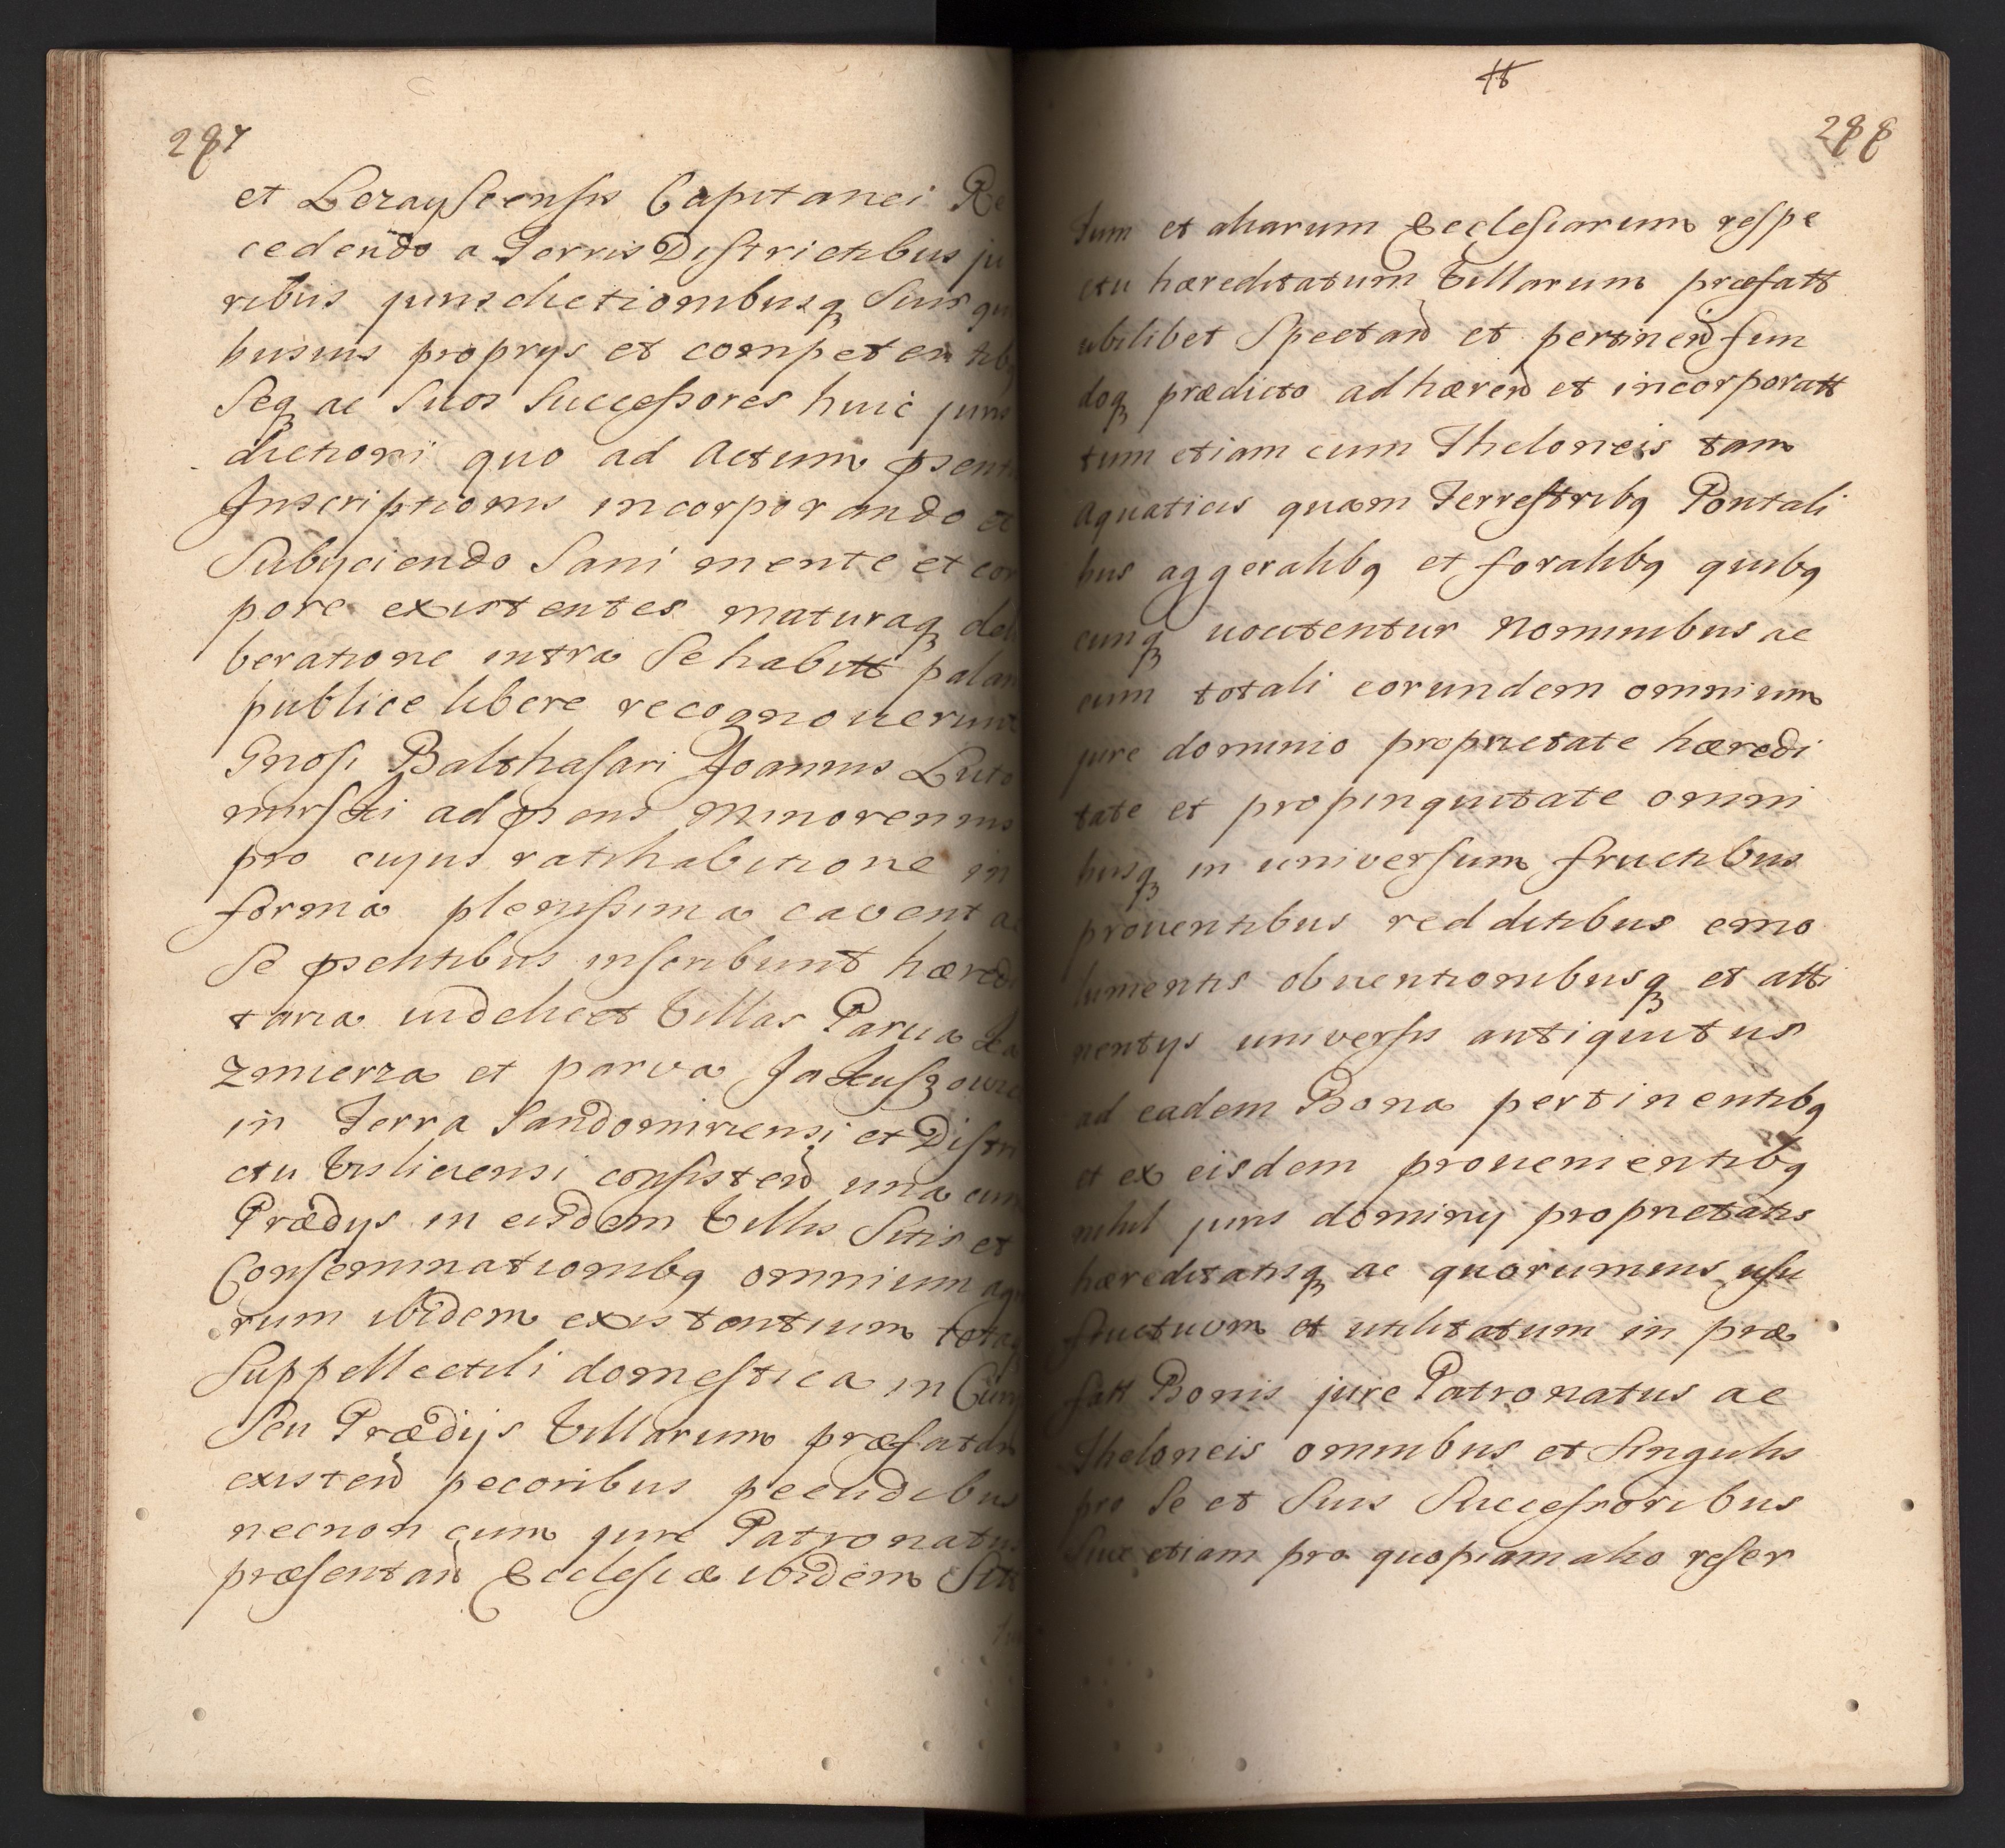 287
et Lezayscensis Capitanei Re
cedendo a Terris Districtibus ju
ribus jurisdictionibusq suis qui
busuis proprys et competentib
seq ac suos successores huic juris
dictioni quo ad actum psenti
Inscriptionis incorporando et
subyciendo sani mente et cor
pore existentes maturaq deli
beratione intra se habitt palam
publice libere recognouerunt
Gnosi Balthasari Joannis Luto
mirski ad psens minorennis
pro cujus ratihabitione in
forma plenissima cavent ac
se psentibus inscribunt hæredi
taria uidelicet Villas Parua Ka
zmierza et parva Jakuszowic
in Terra Sandomiriensi et Distri
ctu Visliciensi consisten una cum
Prædys in eisdem Villis sitis et
Conseminationibq omnium ag
rum ibidem existentium totaq
suppellectili domestica in Curijs
seu Prædijs Villarum præfatar
existen pecoribus pecudibus
necnon cum jure Patronatus
præsentan Ecclesiæ ibidem sitt
tt
288
tum et aliarum Ecclesiarum respe
ctu hæreditatum Villarum præfatt
ubilibet spectan et pertinen fun
doq prædicto adhæren et incorporatt
tum etiam cum Theloneis tam
aquaticis quam Terrestribq Pontali
bus aggeralibq et foralibq quibq
cunq uocitentur nominibus ac
cum totali eorundem omnium
jure dominio proprietate hæredi
tate et propinquitate omni
busq in universum fructibus
prouentibus redditibus emo
lumentis obuentionibusq et atti
nentys universis antiquitus
ad eadem Bona pertinentibq
et ex eisdem prouenientibq
nihil juris dominy proprietatis
hæreditatisq ac quorumuis usu
fructuum et utilitatum in præ
fatt Bonis jure Patronatus ac
Theloneis omnibus et singulis
pro se et suis successoribus
siue etiam pro quopiam alio reser